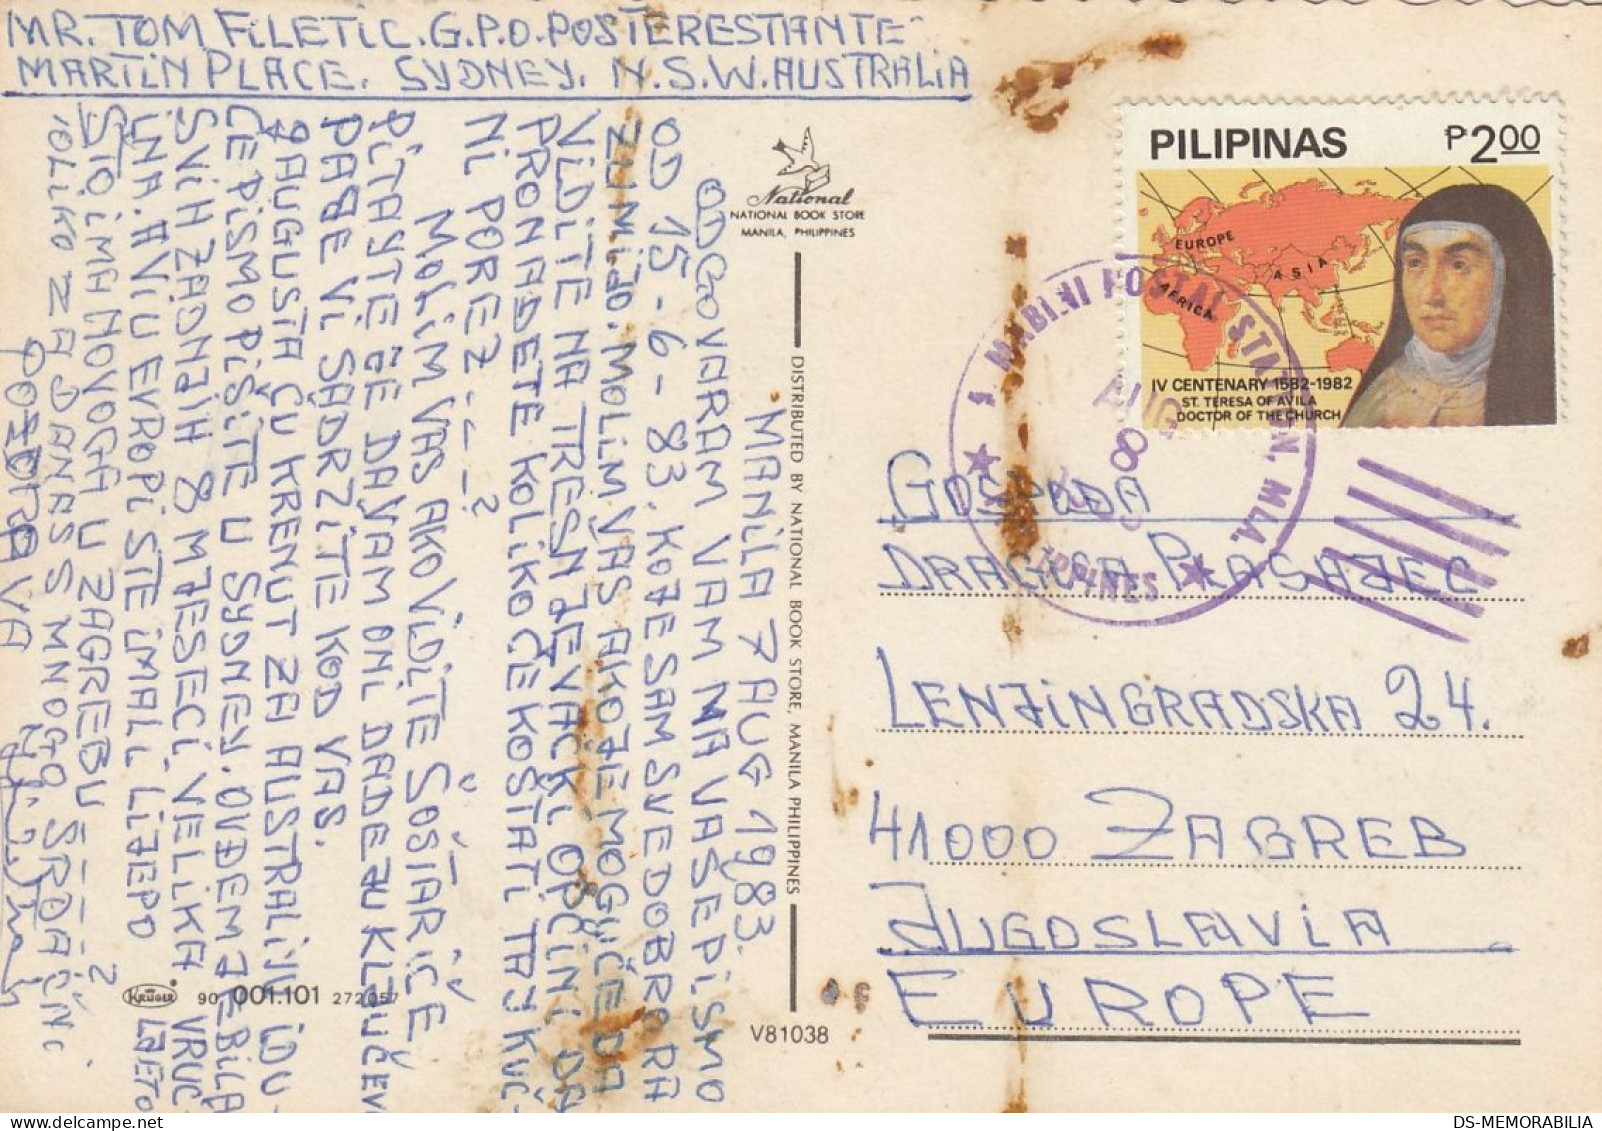 MR. TOM FiLETiC. G.P.O. POSTERESTANTE
MARTiN PLACE. SYDNEY. N.S.W. AUSTRALiA
MANiLA 7 AUG 1983.
ODGOVARAM VAM NA VAŠE PiSMO
OD 15-6-83. KOJE SAM SVE DOBRO RA
ZUMiJO. MOLiM VAS AKO JE MOGUČE DA
ViDiTE NA TREŠNJEVAČKi OPČiNi DA
PRONAĐETE KOLiKO ČE KOŠTATi TAJ KUČ-
Ni POREZ - - - ?
MOLiM VAS AKO ViDiTE ŠOŠTARiČE
PiTAJTE ČE DAVAM ONi DADEJU KLJUČEV
PAGE Vi SADRZiTE KOD VAS.
9 AUGUSTA ČU KRENUT ZA AUSTRALiJU iDU-
ČE PiSMO PiŠiTE U SYDNEY. OVĐEM JE BiLA
SViH ZADNJiH 8 MJESECi VELiKA VRUČ-
iNA. A Vi U EVROPi STE iMALi LiJEPO LJETO
ŠTO iMA NOVOGA U ZAGREBU - - - - ?
TOLiKO ZA DANAS S MNOGO SRDAČNi
POZDRAVA
National
NATIONAL BOOK STORE
MANILA, PHILIPPINES
DISTRIBUTED BY NATIONAL BOOK STORE, MANILA PHILIPPINES
KRÜGER
90 001.101 272057
V81038
PILIPINAS ₱2.00
EUROPE
ASIA
AFRICA
IV CENTENARY 1582-1982
ST. TERESA OF AVILA
DOCTOR OF THE CHURCH
A. MABINI POSTAL STATION, MLA.
AUG
8
GOSPOĐA
DRAGiCA PLASAJEC
LENJiNGRADSKA 24.
41000 ZAGREB
JUGOSLAViA
EUROPE
DS-MEMORABILIA